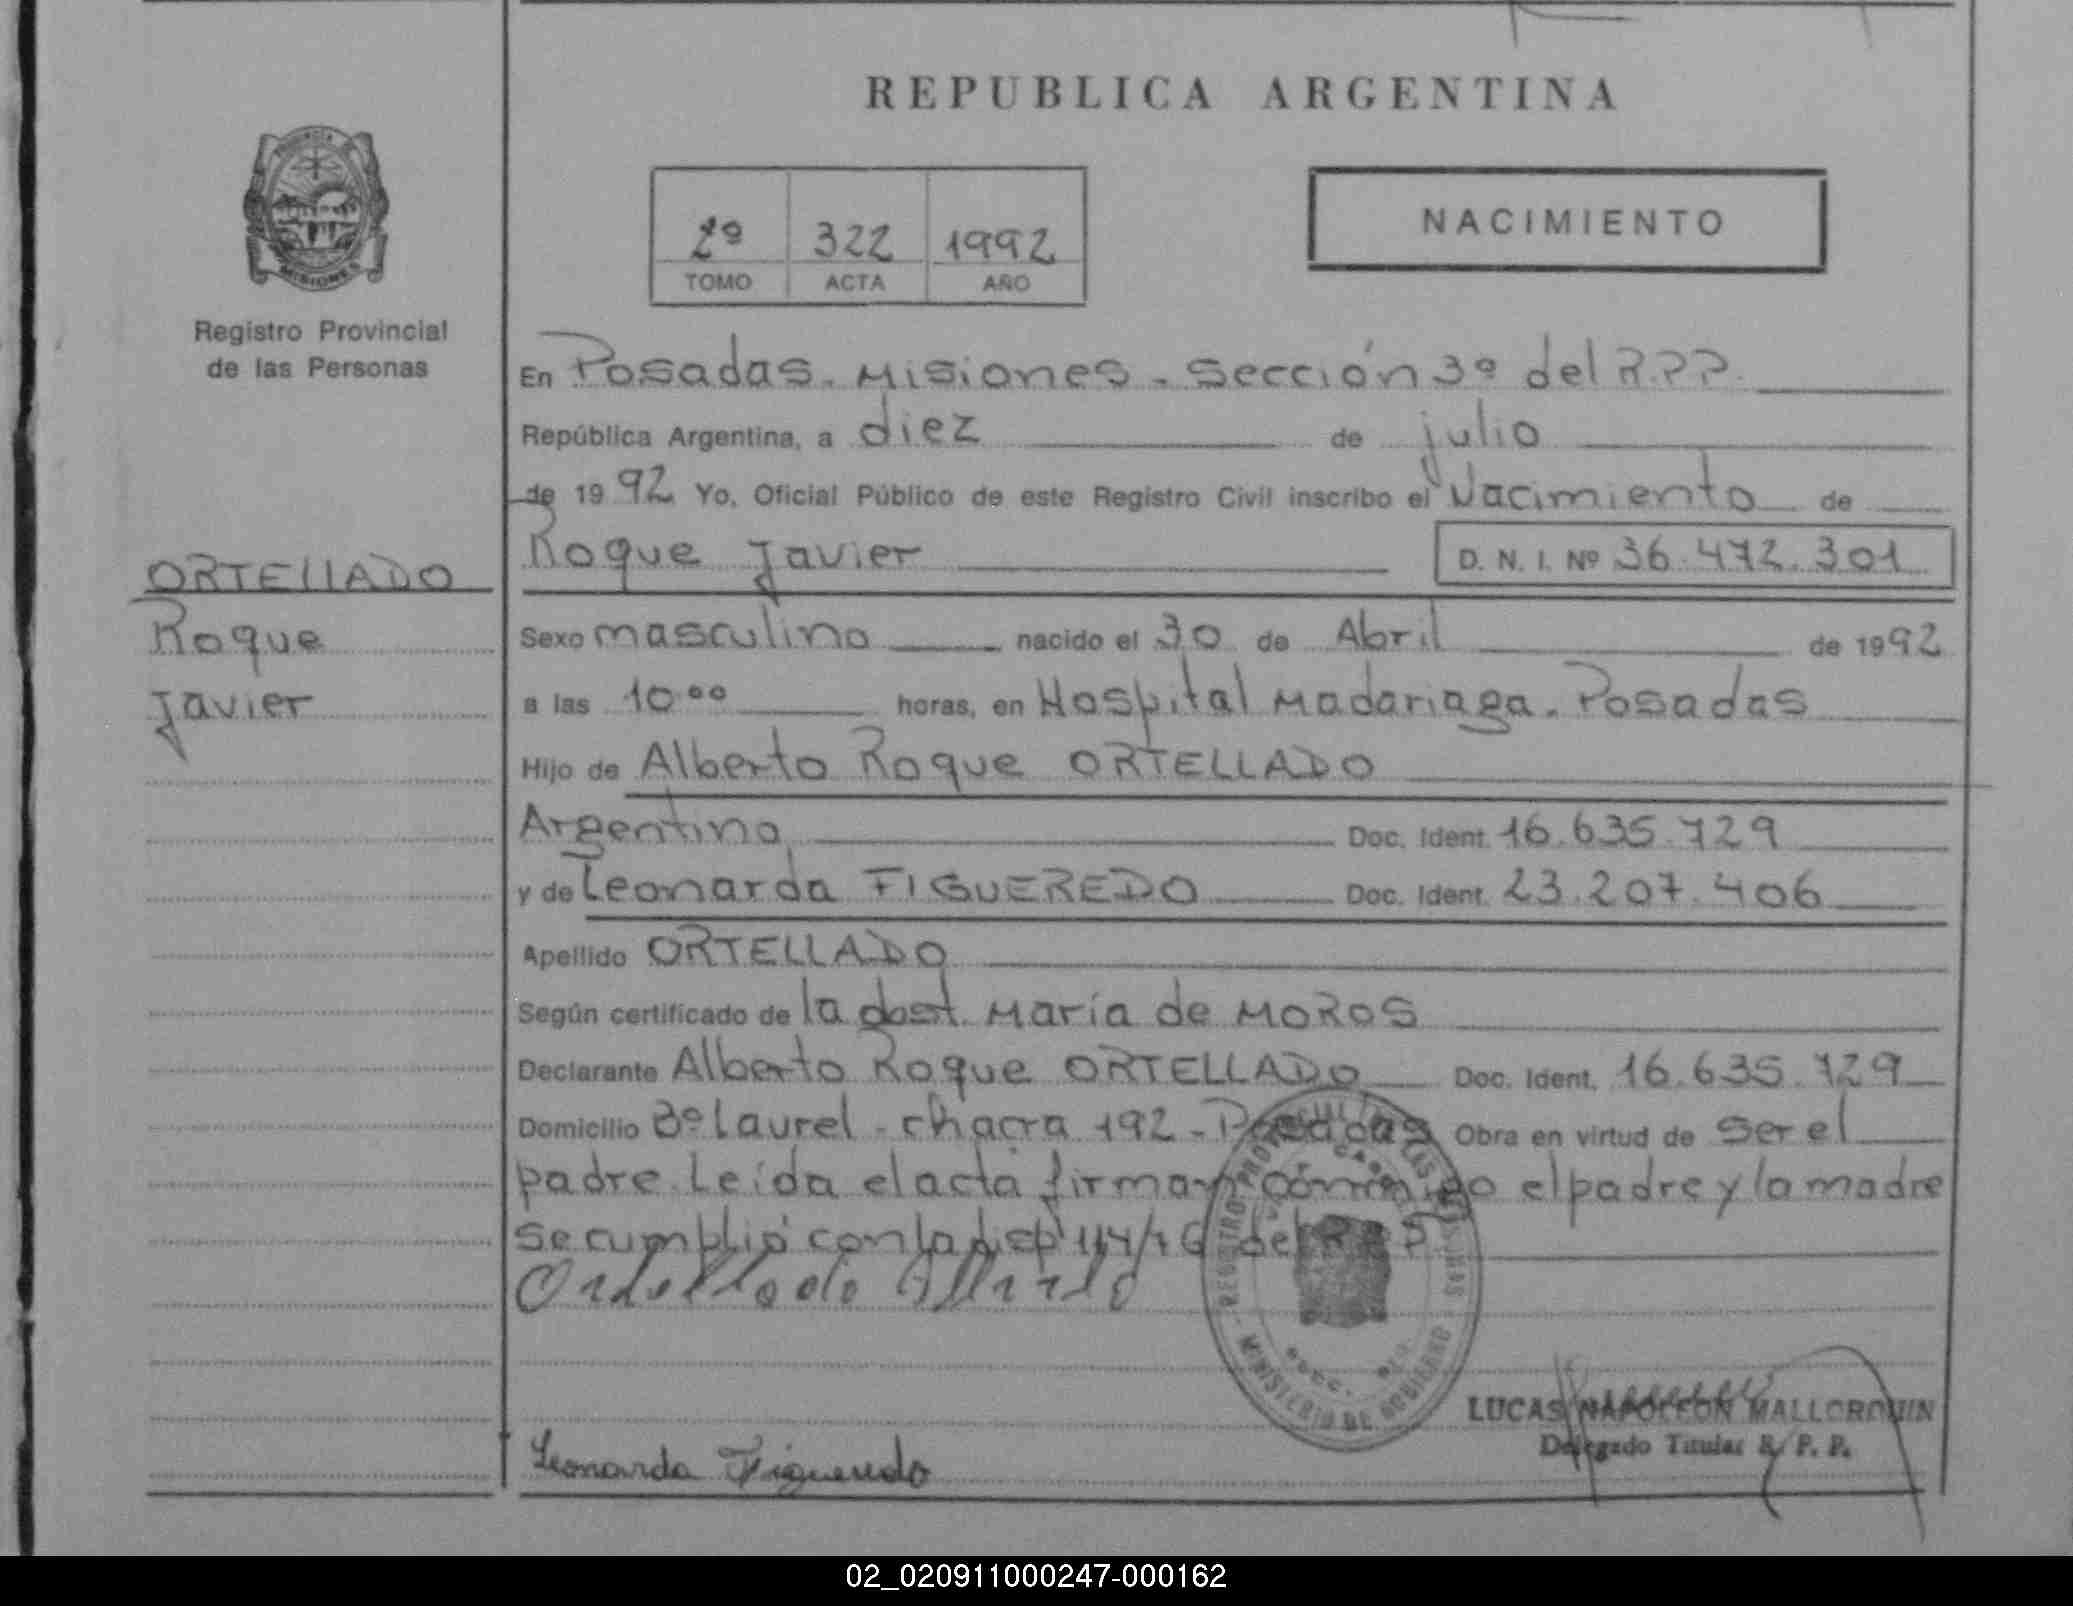 REPUBLICA ARGENTINA
PROVINCIA
MISIONES
Registro Provincial
de las Personas
2º 322 1992
TOMO ACTA AÑO
NACIMIENTO
En Posadas. Misiones. Sección 3º del R.P.P.
República Argentina, a diez de julio
de 1992 Yo, Oficial Público de este Registro Civil inscribo el Nacimiento de
Roque Javier D. N. I. Nº 36.472.301
ORTELLADO
Roque
Javier
Sexo masculino nacido el 30 de Abril de 1992
a las 10.00 horas, en Hospital Madariaga. Posadas
Hijo de Alberto Roque ORTELLADO
Argentino Doc. Ident. 16.635.729
y de Leonarda FIGUEREDO Doc. Ident. 23.207.406
Apellido ORTELLADO
Según certificado de la obst. María de MOROS
Declarante Alberto Roque ORTELLADO Doc. Ident. 16.635.729
Domicilio Bº Laurel - Chacra 192 - Posadas Obra en virtud de ser el
padre. Leída el acta firman conmigo el padre y la madre
se cumplió con la disp 114/76 del
Ortellado Alberto
MINISTERIO DE GOBIERNO
LUCAS NAPOLEON MALLORQUIN
Delegado Titular R. P. P.
Leonarda Figueredo
02_020911000247-000162